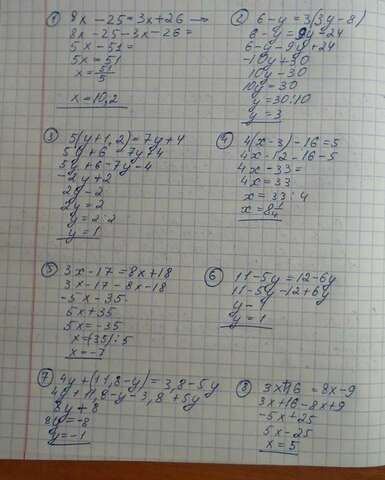 ① 8x - 25 = 3x + 26
8x - 25 - 3x - 26 =
5x - 51 =
5x = 51
x = 51/5
x = 10,2
② 6 - y = 3(3y - 8)
6 - y = 9y - 24
6 - y - 9y + 24
-10y + 30
10y - 30
10y = 30
y = 30:10
y = 3
③ 5(y + 1,2) = 7y + 4
5y + 6 = 7y + 4
5y + 6 - 7y - 4
-2y + 2
2y - 2
2y = 2
y = 2:2
y = 1
④ 4(x - 3) - 16 = 5
4x - 12 - 16 - 5
4x - 33 =
4x = 33
x = 33:4
x = 8 1/4
⑤ 3x - 17 = 8x + 18
3x - 17 - 8x - 18
-5x - 35
5x + 35
5x = -35
x = (35):5
x = -7
⑥ 11 - 5y = 12 - 6y
11 - 5y - 12 + 6y
y - 1
y = 1
⑦ 4y + (11,8 - y) = 3,8 - 5y
4y + 11,8 - y - 3,8 + 5y
8y + 8
8y = -8
y = -1
⑧ 3x + 16 = 8x - 9
3x + 16 - 8x + 9
-5x + 25
5x - 25
x = 5